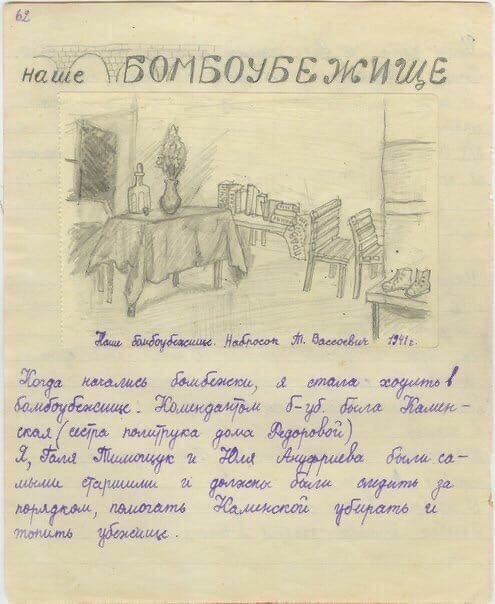 62
наше БОМБОУБЕЖИЩЕ
Наше бомбоубежище. Набросок Т. Вассоевич 1941г.
Когда начались бомбежки, я стала ходить в
бомбоубежище. Комендантом б-уб. была Камин-
ская (сестра политрука дома Федоровой)
Я, Галя Тимощук и Юля Ануфриева были са-
мыми старшими и должны были следить за
порядком, помогать Каминской убирать и
топить убежище.